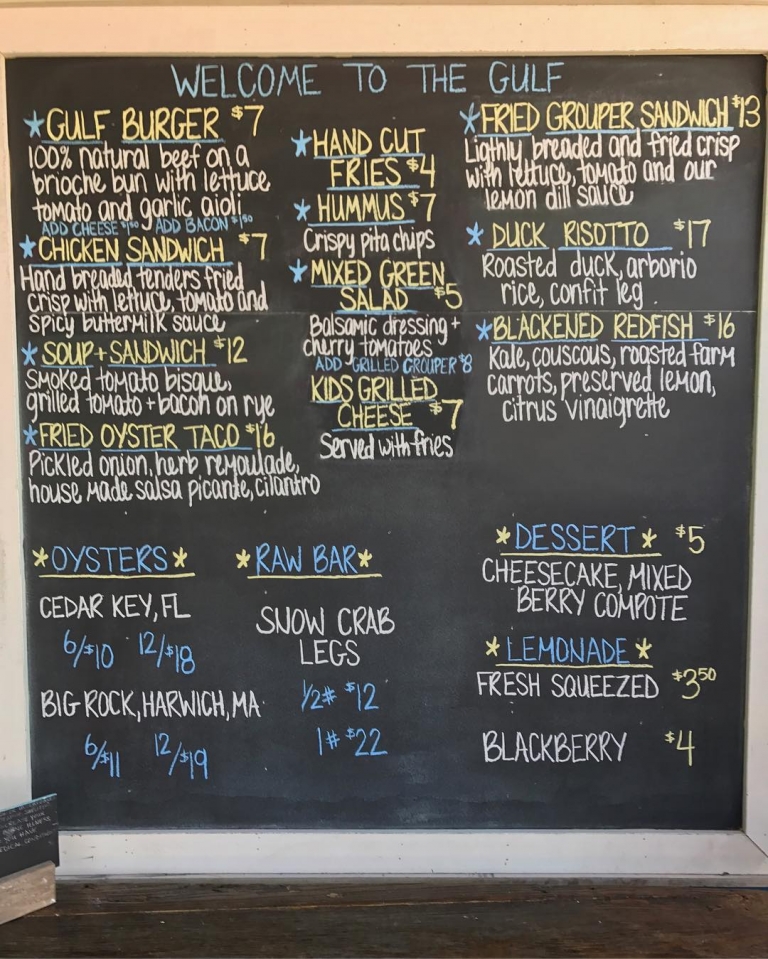 WELCOME TO THE GULF
*GULF BURGER $7
100% natural beef on a
brioche bun with lettuce
tomato and garlic aioli
ADD CHEESE $1.50 ADD BACON $1.50
*CHICKEN SANDWICH $7
Hand breaded tenders fried
crisp with lettuce, tomato and
spicy buttermilk sauce
*SOUP+SANDWICH $12
Smoked tomato bisque,
grilled tomato+bacon on rye
*FRIED OYSTER TACO $16
Pickled onion, herb remoulade,
house made salsa picante, cilantro
*HAND CUT
FRIES $4
*HUMMUS $7
Crispy pita chips
*MIXED GREEN
SALAD $5
Balsamic dressing +
cherry tomatoes
ADD GRILLED GROUPER $8
KIDS GRILLED
CHEESE $7
Served with fries
*FRIED GROUPER SANDWICH $13
Ligthly breaded and fried crisp
with lettuce, tomato and our
lemon dill sauce
*DUCK RISOTTO $17
Roasted duck, arborio
rice, confit leg.
*BLACKENED REDFISH $16
Kale, couscous, roasted farm
carrots, preserved lemon,
citrus vinaigrette
*OYSTERS*
CEDAR KEY, FL
6/$10 12/$18
BIG ROCK, HARWICH, MA
6/$11 12/$19
*RAW BAR*
SNOW CRAB
LEGS
1/2# $12
1# $22
*DESSERT* $5
CHEESECAKE, MIXED
BERRY COMPOTE
*LEMONADE*
FRESH SQUEEZED $3.50
BLACKBERRY $4